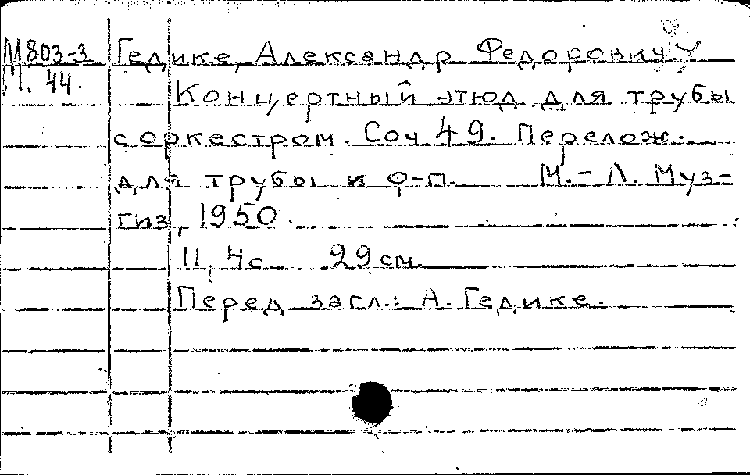 М803-3 Гедике, Александр Федорович
М. 44.
Концертный этюд для трубы
с оркестром. Соч 49. Перелож.
для трубы и ф-п. М.-Л. Муз-
гиз, 1950.
11, 4с 29 см.
Перед загл.: А. Гедике.